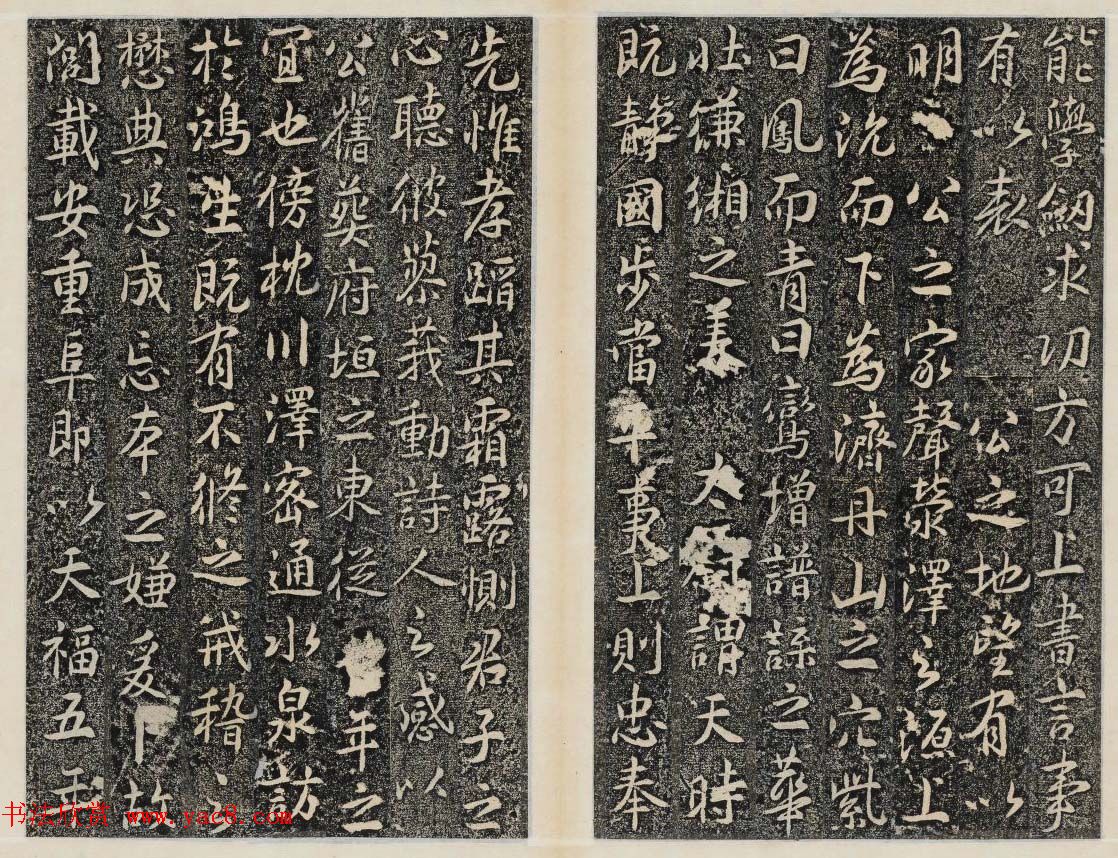 能學劔求功方可上書言事
有以表公之地望有以
明公之家聲滎澤之源上
為沇而下為濟丹山之穴紫
曰鳳而青曰鸞增譜諜之華
壯縑緗之美大謂天時
既静國步當平事上則忠奉
先惟孝蹈其霜露惻君子之
心聽彼蓼莪動詩人之感以
公舊葬府垣之東從年之
宜也傍枕川澤密通水泉訪
於鴻生既有不修之戒稽之
懋典恐成忘本之嫌爰卜故
閻載安重阜即以天福五年
书法欣赏 www.yac8.com